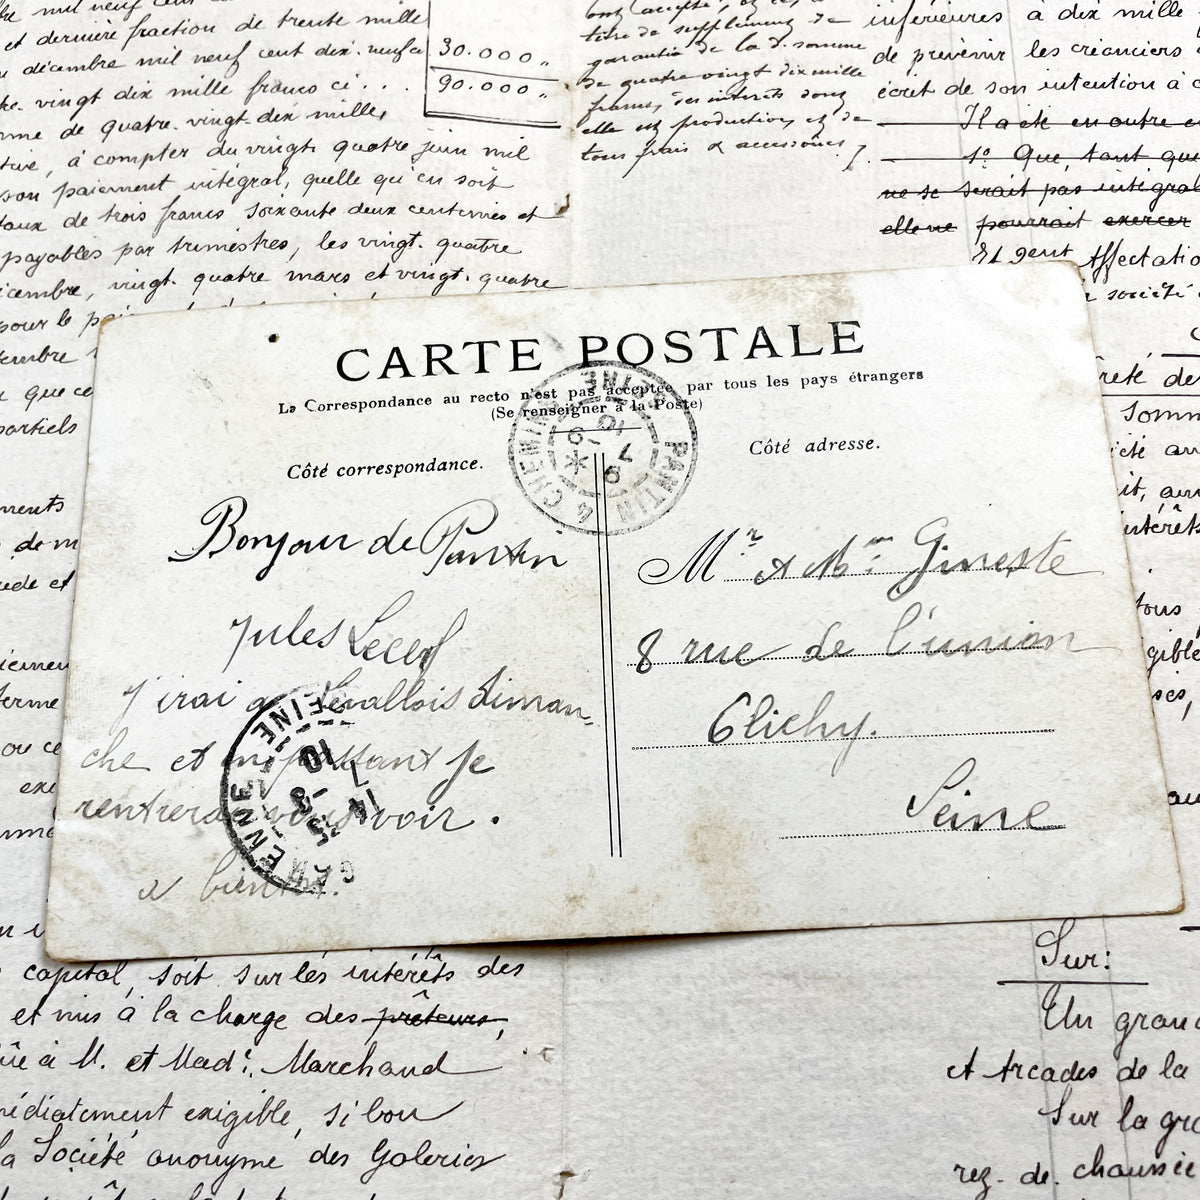 et dernière fraction de trente mille
décembre mil neuf cent dix-neuf ce
30.000„
vingt dix mille francs ci...
90.000„
de quatre-vingt-dix mille,
à compter du vingt-quatre juin mil
son paiement intégral, quelle qu'en soit
taux de trois francs soixante deux centimes et
payables par trimestres, les vingt-quatre
vingt-quatre mars et vingt-quatre
pour le
que ce
partiels
titre de supplément de
garantie de la d. somme
de quatre vingt dix mille
francs, des intérêts dont
elle est productive, et de
tous frais & accessoires,
inférieures à dix mille
de prévenir les créanciers
écrit de son intention à
Il a été en outre
1° Que, tant que
ne se serait pas intégral
elle ne pourrait exercer
Et gent Affectatio
société
CARTE POSTALE
La Correspondance au recto n'est pas acceptée par tous les pays étrangers
(Se renseigner à la Poste)
PANTIN 4 CHEMINS
SEINE
Côté correspondance.
Côté adresse.
Bonjour de Pantin
Jules Lecerf
J'irai a Levallois diman-
che et en passant je
rentrerai vous voir.
a bientôt.
GARENNE
SEINE
Mr & Mme Gineste
8 rue de l'union
Clichy.
Seine
capital, soit sur les intérêts des
et mis à la charge des prêteurs,
à M. et Made Marchand
exigible, si bon
la Société anonyme des Galeries
Sur:
Un grand
et Arcades de la
Sur la
rez-de-chaussée